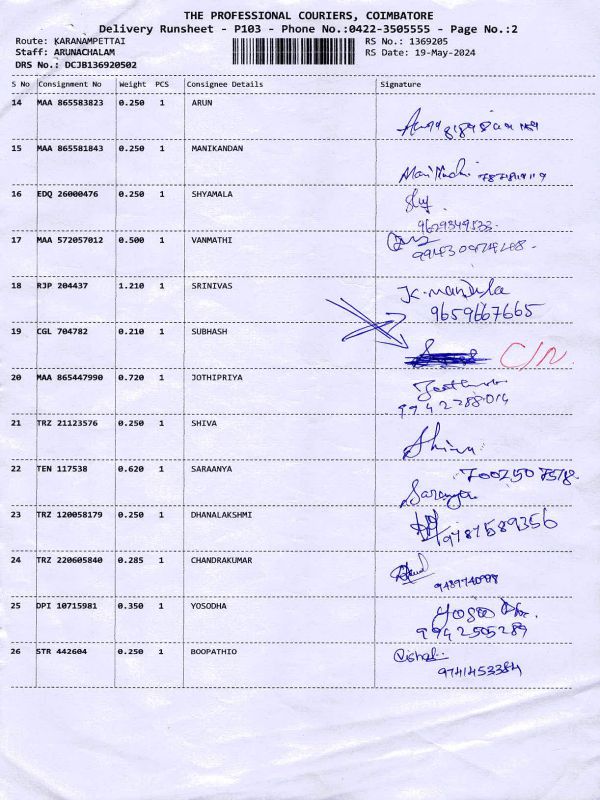 THE PROFESSIONAL COURIERS, COIMBATORE
Delivery Runsheet - P103 - Phone No.:0422-3505555 - Page No.:2
Route: KARANAMPETTAI RS No.: 1369205
Staff: ARUNACHALAM RS Date: 19-May-2024
DRS No.: DCJB136920502
S No Consignment No Weight PCS Consignee Details Signature
14 MAA 865583823 0.250 1 ARUN
15 MAA 865581843 0.250 1 MANIKANDAN
16 EDQ 26000476 0.250 1 SHYAMALA
17 MAA 572057012 0.500 1 VANMATHI
18 RJP 204437 1.210 1 SRINIVAS K.Mandula
9659667665
19 CGL 704782 0.210 1 SUBHASH C/N
20 MAA 865447990 0.720 1 JOTHIPRIYA
9742288014
21 TRZ 21123576 0.250 1 SHIVA Shiva
22 TEN 117538 0.620 1 SARAANYA
Saranya
23 TRZ 120058179 0.250 1 DHANALAKSHMI 9787589356
24 TRZ 220605840 0.285 1 CHANDRAKUMAR
25 DPI 10715981 0.350 1 YOSODHA
9942505289
26 STR 442604 0.250 1 BOOPATHIO Vishal
9741453384